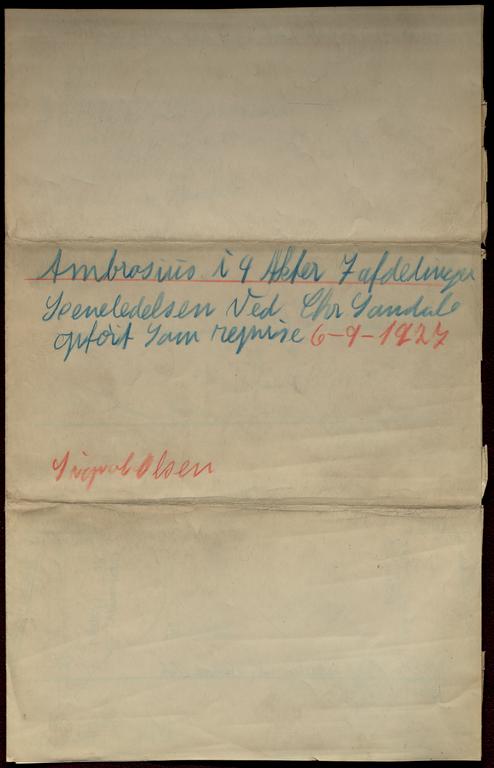 Ambrosius i 4 Akter 7 afdelinger
Sceneledelsen Ved. Chr Sandal
opført Som reprise 6-9-1927
Sigvol Olsen